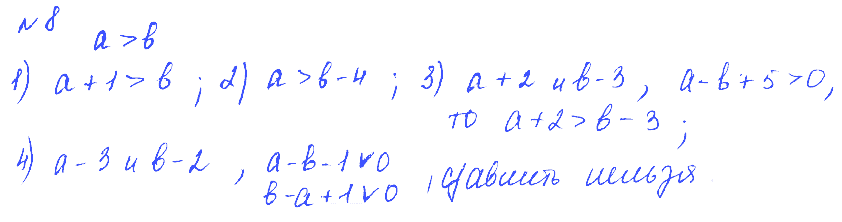 №8
a > b
1) a + 1 > b ; 2) a > b - 4 ; 3) a + 2 и b - 3 , a - b + 5 > 0,
то a + 2 > b - 3 ;
4) a - 3 и b - 2 , a - b - 1 ∨ 0
b - a + 1 ∨ 0 , сравнить нельзя